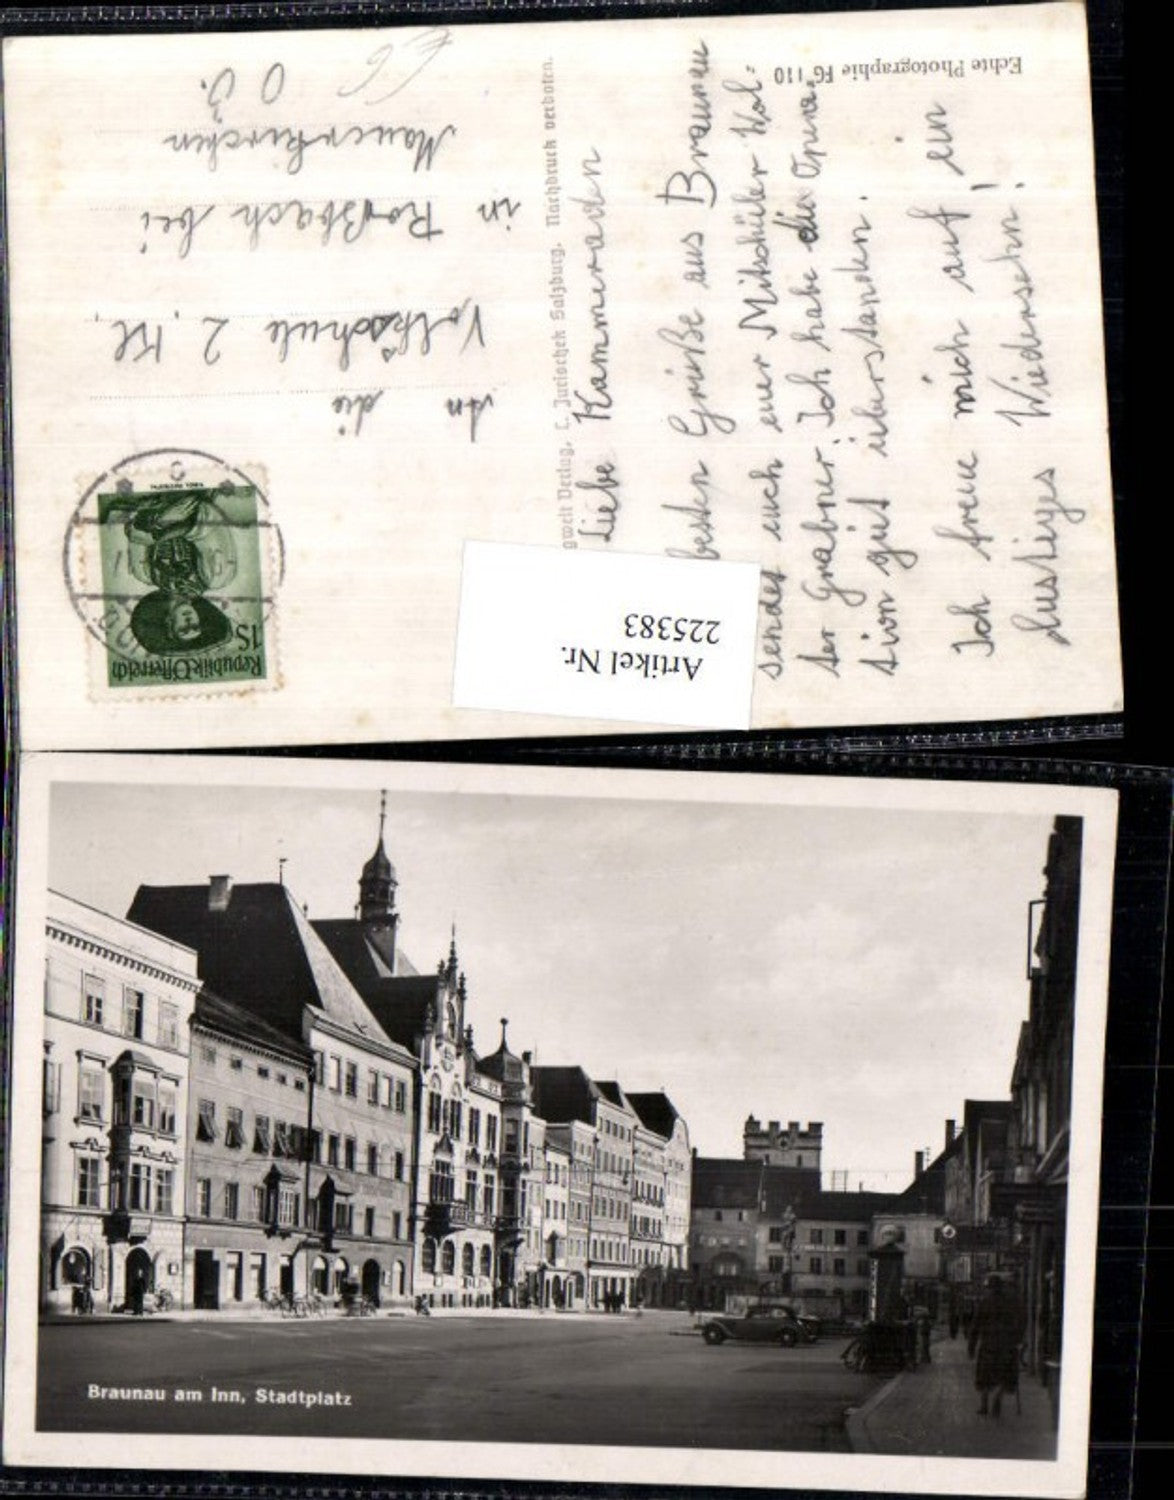 Echte Photographie FG 110
Liebe Kammeraden
besten Grüße aus Braunau
sendet euch euer Mitschüler Wal-
ter Grabner. Ich habe die Opera-
tion gut überstanden.
Ich freue mich auf ein
lustiges Wiedersehn!
Verlag, C. Jurischek Salzburg. Nachdruck verboten.
Republik Österreich
1S
An die
Volksschule 2. Kl,
in Roßbach bei
Mauerkirchen
O Ö.
Artikel Nr.
225383
Braunau am Inn, Stadtplatz